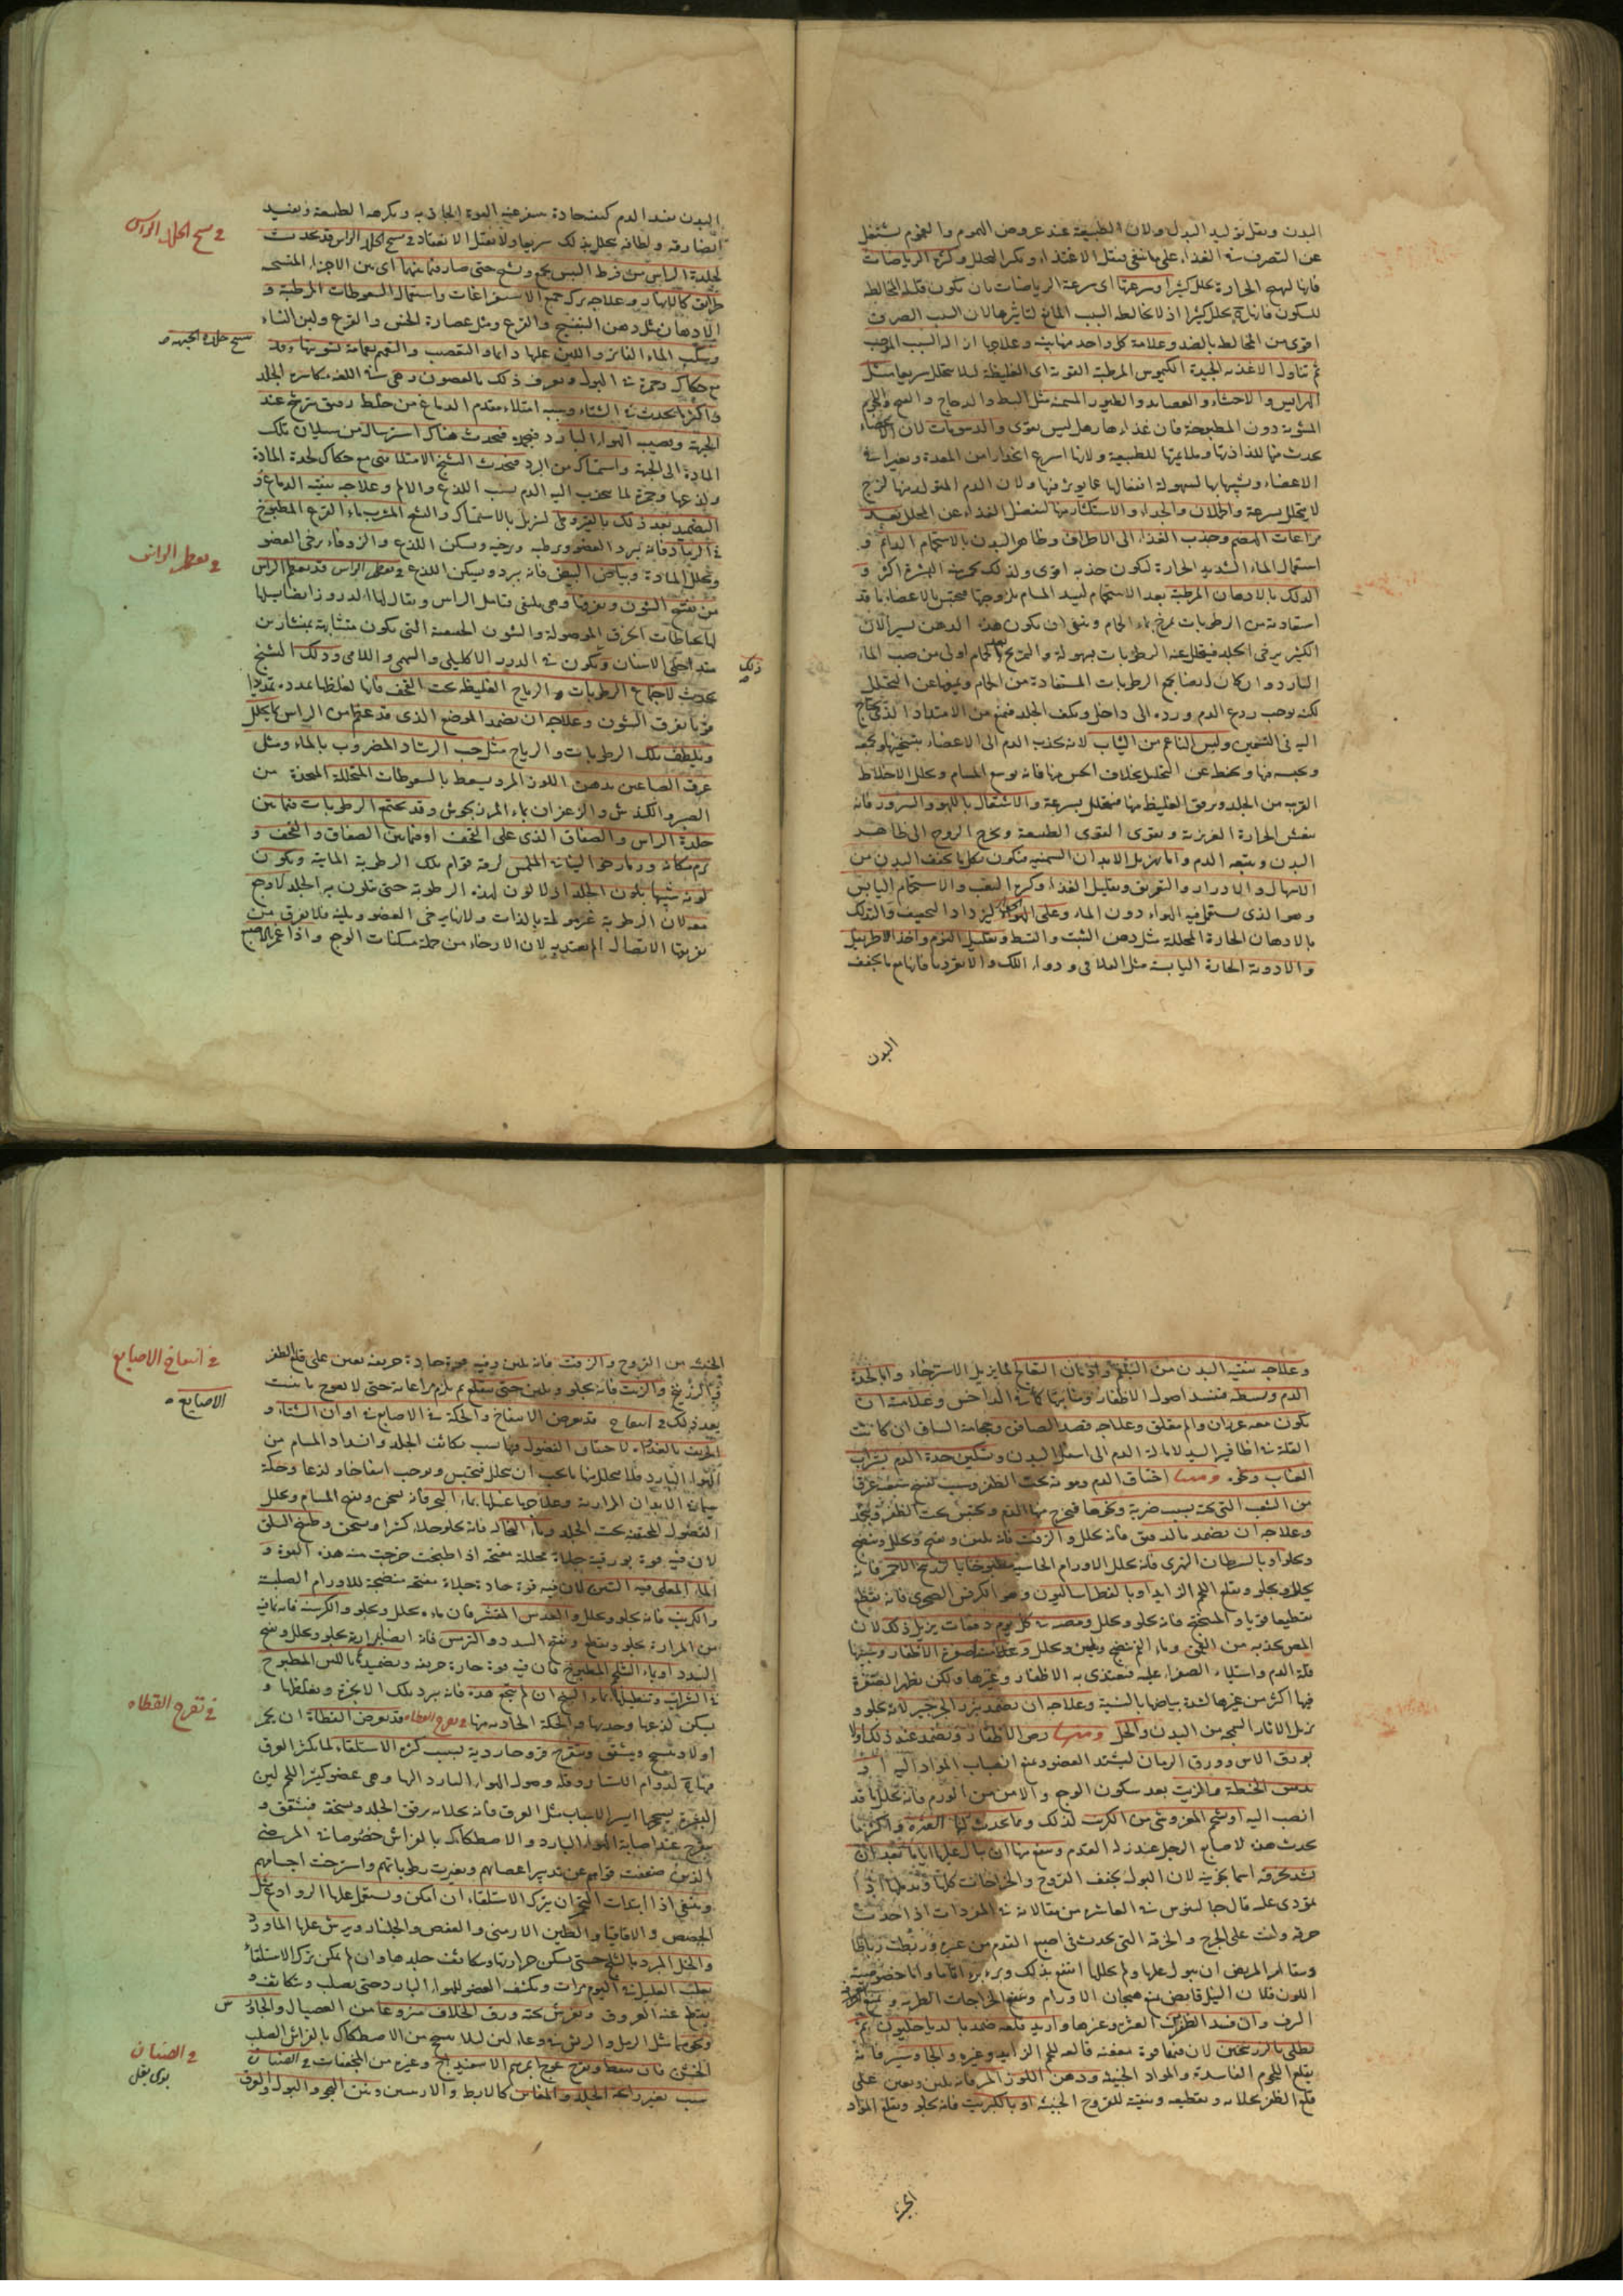 البدن ويقل توليد البدل ولان الطبيعة عند عروض الهموم والغموم يشتغل
عن التصرف في الغذاء على ما ينبغي فيقل الاغتذاء ويكثر التحلل وكثرة الرياضات
فانها تهيج الحرارة تحلل كثيرا وسرعتها اى سرعة الرياضات بان تكون قليلة المخالطة
للسكون فانها تحلل كثيرا اذ لا يخالطه السبب المانع لتاثيرها لان السبب الصرف
اقوى من المخالط بالضد وعلامة كل واحد منها بينة وعلاجها ازالة السبب الموجب
ثم تناول الاغذية الجيدة الكيموس المرطبة القوية اى الغليظة لئلا يتحلل سريعا مثل
الهرايس والاحشاء والعصايد والطيور المسمنة مثل البط والدجاج
المشوية دون المطبوخة فان غذاءها
يحدث منها للذاذتها وملايمتها للطبيعة ولانها اسرع انحدارا من المعدة
الاعضاء وتشبهها بها لسهولة انفعالها عما يوثر فيها ولان الدم المتولد منها لزج
لا يتحلل بسرعة والحملان والجداء والاستكثار منها ليفضل الغذاء عن المحلل بعد
مراعات الهضم وجذب الغذاء الى الاطراف وظاهر البدن بالاستحمام الدائم و
استعمال الماء الشديد الحرارة ليكون جذبه اقوى ولذلك البشرة اكثر و
الدلك بالادهان المرطبة بعد الاستحمام ليسد المسام بلزوجتها فيحتبس بالاعضاء ما قد
استفادته من الرطوبات بماء الحمام وينبغى ان يكون هذا الدهن يسيرا لان
الكثير يرخى الجلد فيتحلل عنه الرطوبات بسهولة والتمريخ بعد الحمام اولى من صب الماء
البارد وان كان ايضا يجمع الرطوبات المستفادة من الحمام ويمنعها عن التحلل
لكنه يوجب ردع الدم ورده الى داخل ويكثف الجلد فيمنع من الامتداد الذى يحتاج
اليه فى التسمين ولبس الناعم من الثياب لانه يجذب الدم الى الاعضاء بتسخينها
ويحبسه فيها ويحفظه عن التحلل بخلاف الخشن منها فانه يوسع المسام ويحلل الاخلاط
القريبة من الجلد ويرقق الغليظ منها فيتحلل بسرعة والاشتغال باللهو والسرور فانه
ينعش الحرارة الغريزية ويقوى القوى الطبيعية ويخرج الروح الى ظاهر
البدن ويتبعه الدم واما تهزيل الابدان السمينة فيكون بكل ما يجفف البدن من
الاسهال والادرار والتعريق وتقليل الغذاء وكثرة التعب والاستحمام اليابس
وهو الذى يستعمل فيه الهواء دون الماء وعلى الخواء ليزداد التجفيف والتدلك
بالادهان الحارة المحللة مثل دهن الشبت والقسط وتقليل النوم واخذ الاطريفل
والادوية الحارة اليابسة مثل الفلافلى ودواء اللك والانقرديا فانها مع ما يجفف
البدن
البدن يفيد الدم كيفية حادة ينفر عنه القوة الجاذبة ويكرهه الطبيعة ويفيد
ايضا رقة ولطافة يتحلل بذلك سريعا ولا يقبل الانعقاد فى تشنج الجلد الراس قد يحدث
فى تشنج الجلد الراس
لجلدة الراس من فرط اليبس تجمع وتشنج حتى صار فيما بينها اى بين الاجزاء المتشنجة
طرايق كالانهار وعلاجه ترك جميع الاستفراغات واستعمال السعوطات المرطبة و
الادهان مثل دهن البنفسج والقرع ومثل عصارة الخس والقرع ولبن النساء
وسكب الماء الفاتر واللبن عليها دايما والتعصب والتعمم بعمامة
تشنج جلدة الجبهة
مع حكاك وحمرة ويعرف ذلك بالغصون وهى فى اللغة مكاسر الجلد
واكثرها يحدث فى الشتاء وسببه امتلاء مقدم الدماغ من خلط رقيق يترشح عند
الجبهة ويصيبه الهواء البارد فيجمد فيحدث هناك استرسالة من سيلان تلك
المادة الى الجبهة واستمساك من البرد فيحدث التشنج الامتلائى مع حكاك لحدة المادة
ولذعها وحمرة لما ينجذب اليه الدم بسبب اللذع والالم وعلاجه تنقية الدماغ و
التضميد بعد ذلك بالقيروطى ليزيل بالاستمساك والتشنج المشرب بماء القرع المطبوخ
فى الرماد فانه يبرد العضو ويرطبه ويرخيه ويسكن اللذع والزوفاء يرخى العضو
ويحلل المادة وبياض البيض فانه يبرد ويسكن اللذع فى تعظم الراس قد يعظم الراس
فى تعظم الراس
من تفتح الشئون وتفرقها وهى ملتقى قبايل الراس ويقال لها الدروز ايضا
لها بخياطات الخرق الموصولة والشئون الحقيقية التى يكون متشابهة بمنشارين
متداخلى الاسنان ويكون فى الدرز الاكليلى والسهمى واللامى وذلك التشنج
ذلك
يحدث لاجتماع الرطوبات والرياح الغليظة تحت القحف فانها لغلظها تمدده تمديدا
قويا يفرق الشئون وعلاجه ان يضمد الموضع الذى قد عظم من الراس بما يحلل
ويلطف تلك الرطوبات والرياح مثل حب الرشاد المضروب بالماء ومثل
عرق الصاغين بدهن اللوز المر ويسعط بالسعوطات المحللة المتخذة من
الصبر والكندش والزعفران بماء المرزنجوش وقد يجتمع الرطوبات فيما بين
جلدة الراس والصفاق الذى على القحف او فيما بين الصفاق والقحف و
ترم مكانه ورما رخوا لين الملمس لرقة قوام تلك الرطوبة المائية ويكون
لونه شبيها بلون الجلد اذ لا لون لهذه الرطوبة حتى يتلون به الجلد ولا وجع
معه لان الرطوبة غير مولمة بالذات ولانها يرخى العضو ويلينه فلا يفرق من
تفريقها الاتصال لان الارخاء من جملة مسكنات الوجع واذا غمز الاصبع
وعلاجه تنقية البدن من البلغم وادمان التفالج لما يزيل الاسترخاء واما لحدة
الدم وبسطه فيفسد اصول الاظفار ومنابتها كما فى الداحس وعلامته ان
يكون معه ضربان والم مقلق وعلاجه فصد الصافن وحجامة الساق ان كانت
العلة فى اظافير اليد لامالة الدم الى اسفل البدن وتسكين حدة الدم بشراب
العناب ونحوه ومنها اختناق الدم وموته تحت الظفر وسببه تفسخ شعبة عرق
من الشعب التى تحته بسبب ضربة ونحوها فيخرج منها الدم ويحتبس تحت الظفر ويجمد
وعلاجه ان يضمد بالدقيق فانه يحلل والزفت فانه يلين ويفتح ويحلل وينضج
ويجلو او بالسرطان النهرى فانه يحلل الاورام الجاسية مطبوخا بالزرنيخ الاحمر فانه
يحلل ويجلو ويقلع اللحم الزايد او بالفطراساليون وهو الكرفس الصخرى فانه يقطع
تقطيعا قويا والميبختج فانه يجلو ويحلل ومصه فى كل يوم دفعات يزيل ذلك لان
المص يجذبه من العمق وماء الفم ينضج ويلين ويحلل وعلامة صفرة الاظفار وسببها
قلة الدم واستيلاء الصفراء عليه فيغتذى به الاظفار وغيرها ولكن يظهر الصفرة
فيها اكثر من غيرها لشدة بياضها بالنسبة وعلاجه ان يضمد ببزر الجرجير لانه يجلو و
يزيل الاثار السمجة من البدن والخل ومنها رض الاظفار ويضمد عند ذلك اولا
بورق الاس وورق الرمان ليشتد العضو ويمنع انصباب المواد اليه
بدقيق الحنطة والزيت بعد سكون الوجع والامن من الورم فانه يحلل ما قد
انصب اليه او شحم المعز وشى من الكبريت لذلك ومما يحدث لها العثرة واكثر ما
يحدث هذه لاصابع الرجل عند زلة القدم وينفع منها ان يبال عليها اياما بعد ان
يشد بخرقة اسمانجونية لان البول يجفف القروح والجراحات كلها ويدملها
يودى عليه قال جالينوس فى العاشرة من مقالاته فى المفردات اذا اخذت
خرقة ولفت على الجرح والخرقة التى يحدث فى اصبع القدم من عثرة وربطت رباطا
ويقال المريض ان يبول عليها ولم يحللها انتفع بذلك وبرء برءا تاما واما خصوصية
اللون فلان النيل قابض يمنع هيجان الاورام ويمنع الجراحات الطرية
يطلى بالزرنيخين لان فيهما قوة معفنة قالعة للحم الزايد وغيره والجاوشير فانه
يقلع اللحوم الفاسدة والمواد الخبيثة ودهن اللوز المر فانه يلين ويعين على
قلع الظفر بجلائه وتقطيعه وتنقية للقروح الخبيثة او بالكبريت فانه يجلو ويقلع المواد
الخبيثة من القروح والزفت فانه يلين وفيه قوة حادة حريفة يعين على قلع الظفر
فى انتفاخ الاصابع
والزرنيخ والزيت فانه يجلو ويلين حتى ينقلع ثم يلزم مراعاته حتى لا يعوج ما ينبت
الاصابع
بعد ذلك فى انتفاخ قد يعرض الانتفاخ والحكة فى الاصابع فى اوان الشتاء و
الخريف بالغداة لاحتقان الفضول فيها بسبب تكاثف الجلد وانسداد المسام من
الهواء البارد فلا يتحلل منها ما يجب ان يتحلل فيحتبس ويوجب انتفاخا ولذعا وحكة
سيما فى الابدان المرارية وعلاجها غسلها بماء البحر فانه يسخن ويفتح المسام ويحلل
الفضول المحتقنة تحت الجلد وماء النخالة فانه يجلو جلاء كثيرا ويسخن وطبيخ السلق
لان فيه قوة بورقية جلاءة محللة مفتحة اذا طبخت خرجت منه هذه القوة و
الماء المغلى فيه التين لان فيه قوة حادة جلاءة مفتحة منضجة للاورام الصلبة
والكرنب فانه يجلو ويحلل والعدس المقشر فان ماءه يحلل ويجلو والكرسنة فانه بما فيه
من المرارة يجلو ويقطع ويفتح السدد والترمس فانه ايضا لمرارته يجلو ويحلل ويفتح
السدد او بماء الشلجم المطبوخ فان فيه قوة حارة حريفة وتضميدها بالتين المطبوخ
فى الشراب وتنطيلها بماء البنج ان لم ينجع هذه فانه يبرد تلك الابخرة ويغلظها و
يسكن لذعها وحدتها والحكة الحادثة منها فى تقرح القطاة قد يعرض القطاة ان يحمر
فى تقرح القطاة
اولا ويتسحج ويتشقق ويتقرح قروحا ردية بسبب كثرة الاستلقاء لما يكثر العرق
فيها لدوام اللبث وقلة وصول الهواء البارد اليها وهى عضو كثير اللحم لين
البشرة يسحجها ايسر الاسباب مثل العرق فانه بجلائه يرقق الجلد ويسخنه فيتشقق و
يتقرح عند اصابة الهواء البارد والاصطكاك بالفراش خصوصا فى المرضى
الذين ضعفت قواهم عن تدبير اعضائهم وتغيرت رطوباتهم واسترخت اجسامهم
وينبغى اذا ابتدات التحمر ان يترك الاستلقاء ان امكن ويستعمل عليها الروادع مثل
الحضض والاقاقيا والطين الارمنى والعفص والجلنار ويرش عليها الماورد
والخل المبرد بالثلج حتى يسكن حرارتها ويتكاثف جلدها وان لم يمكن ترك الاستلقاء
يقلب العليل فى اليوم مرات ويكشف العضو للهواء البارد حتى يصلب ويتكاثف و
ينقطع عنه العروق ويفرش تحته ورق الخلاف منزوعا من العصيان والجاورس
ونحوها مثل الرمل والريش فى وعاء لين لئلا يتسحج من الاصطكاك بالفراش الصلب
الخشن فان تنفط وتقرح عولج بمرهم الاسفيداج وغيره من المجففات فى الصنان
فى الصنان
بوى بغل
سبب تغير رايحة الجلد والمغابن كالابط والاربيتين ونتن البدن والبول والعرق